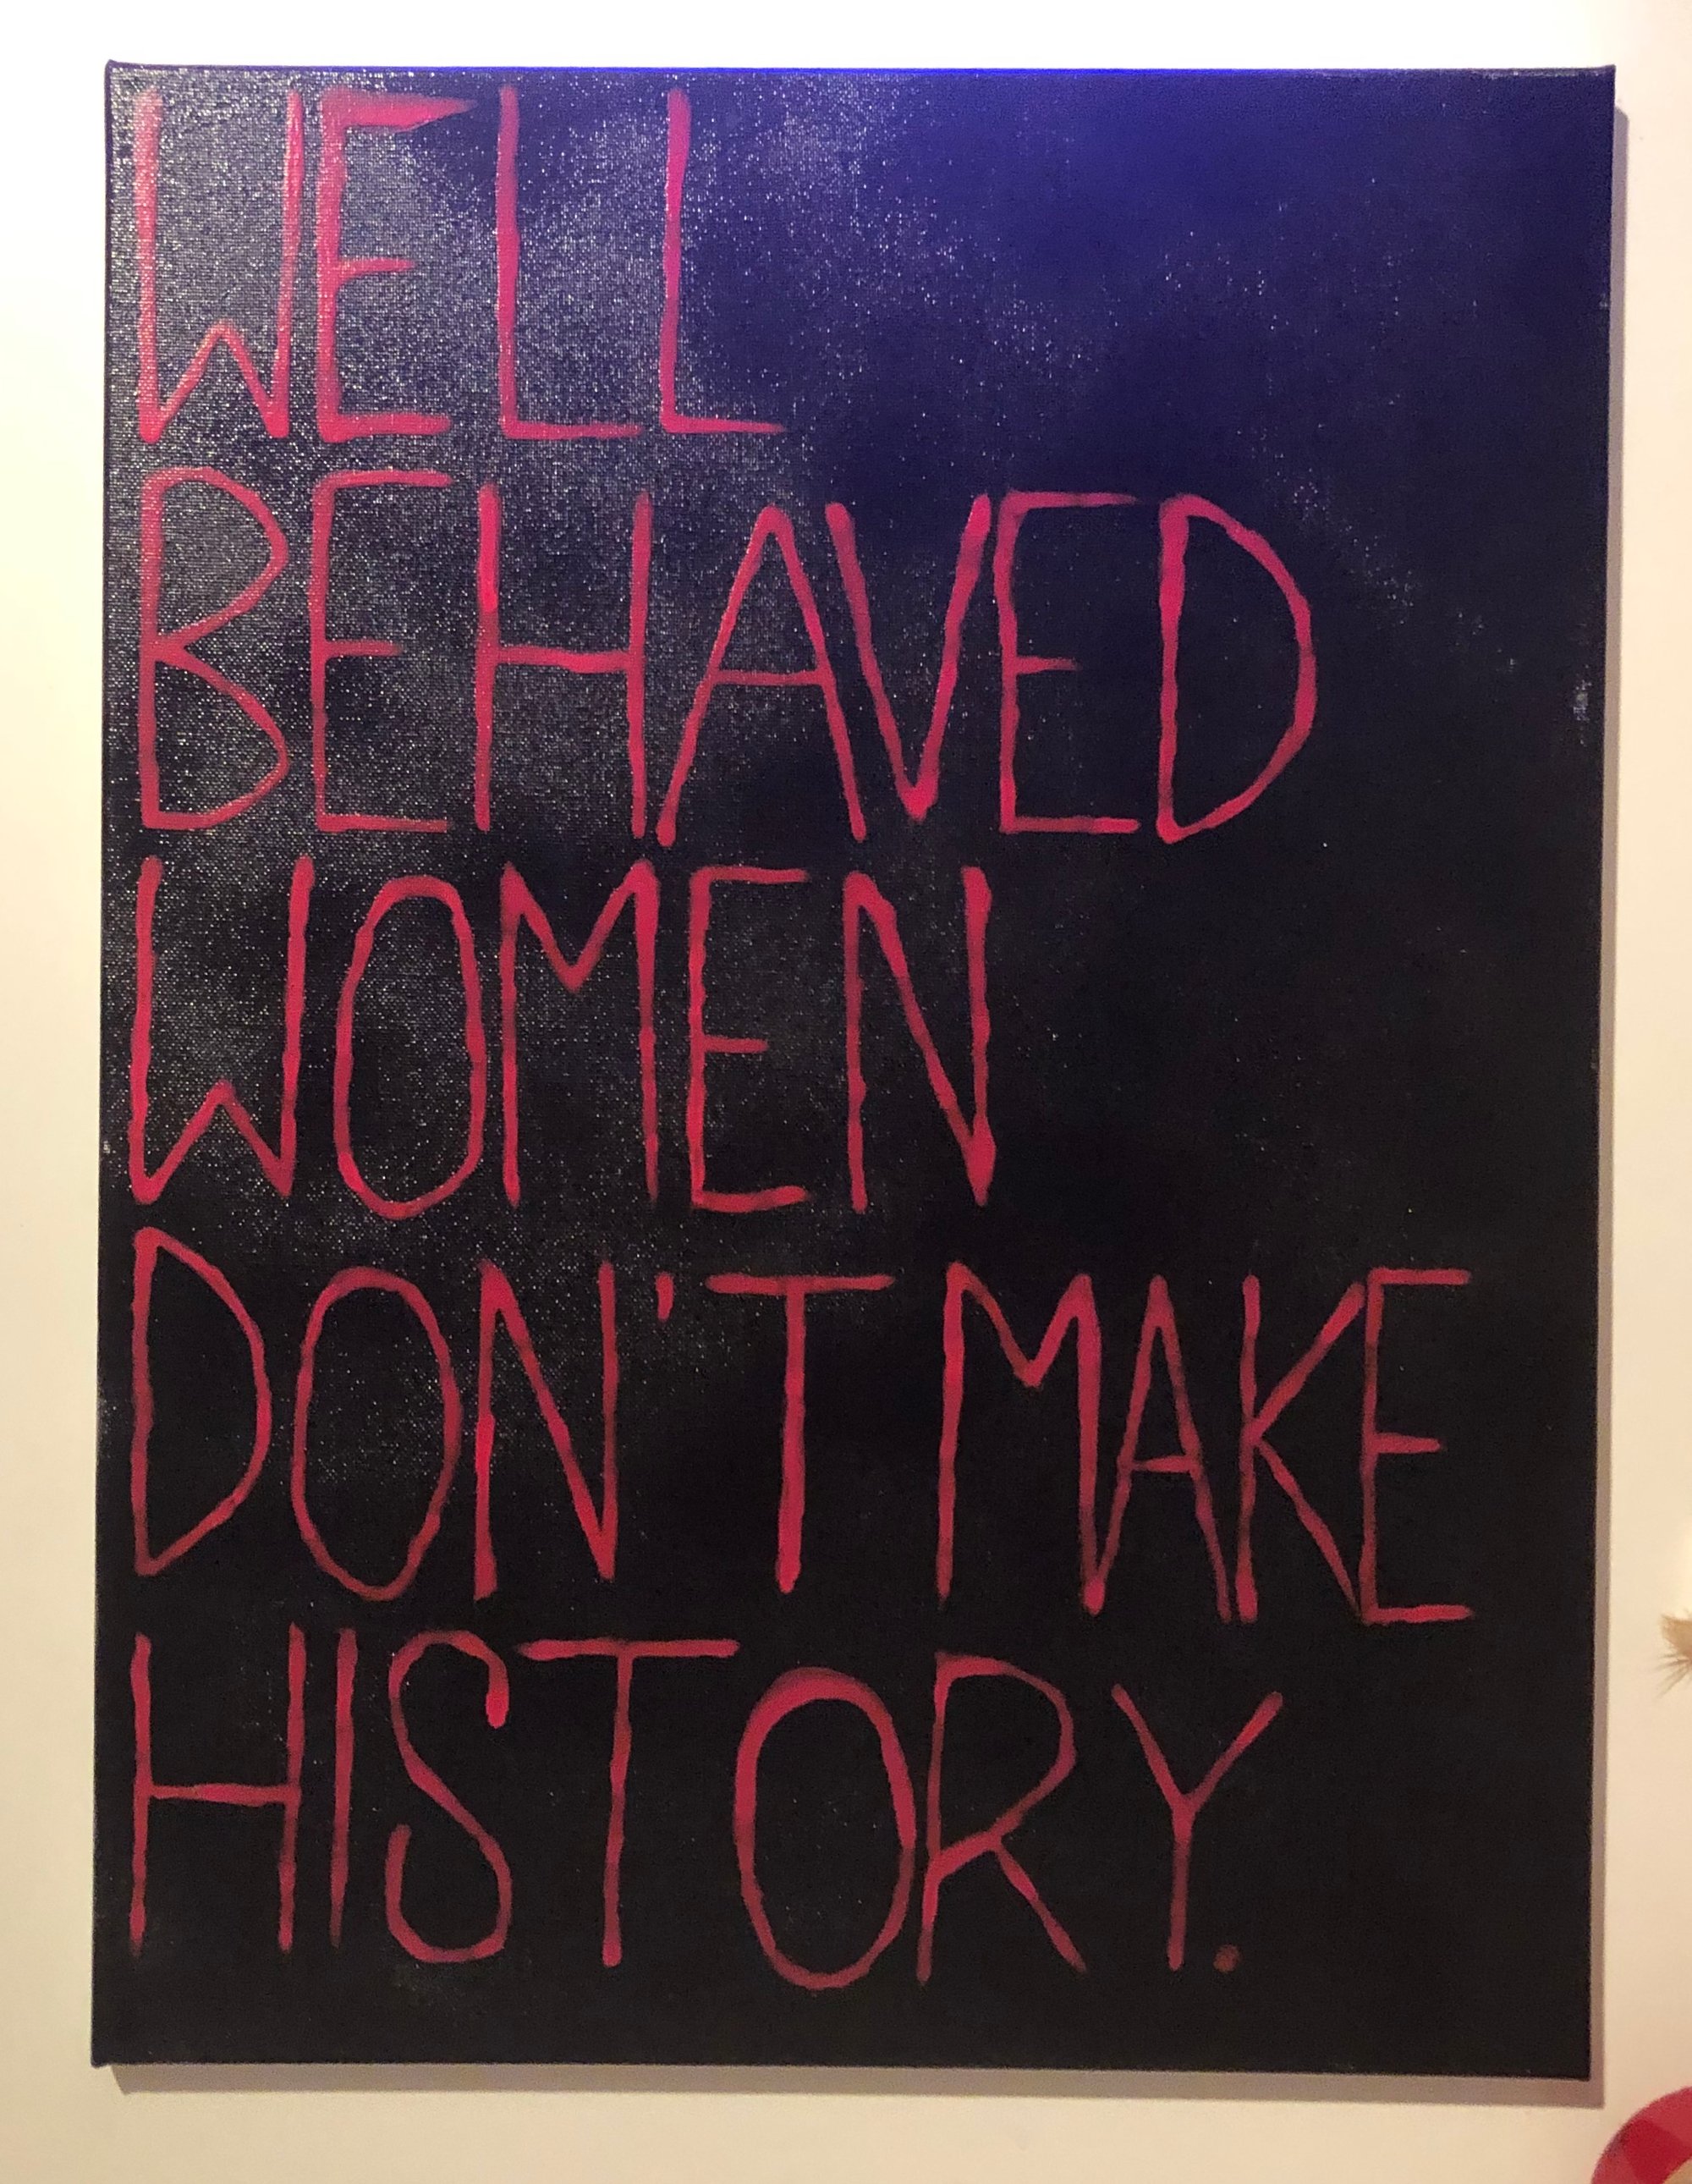 WELL
BEHAVED
WOMEN
DON'T MAKE
HISTORY.